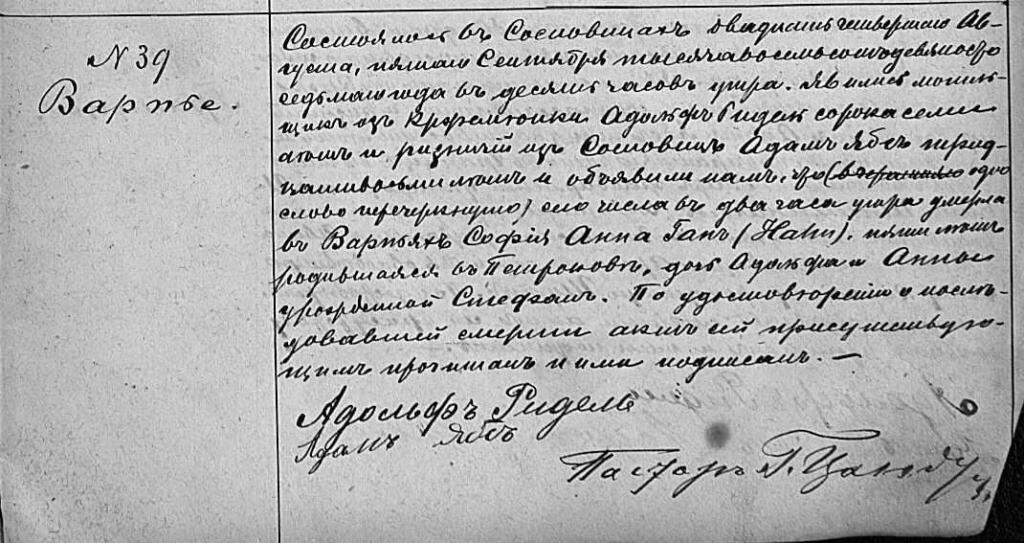 N 39
Варпье.
Состоялось въ Сосновицахъ двадцать четвертаго Ав-
густа, пятаго Сентября тысяча восемьсотъ девяносто
седьмаго года въ десять часовъ утра. Явились могиль-
щикъ изъ Адольфъ Ридель сорока семи
лѣтъ и ризничій изъ Сосновицъ Адамъ Ябсъ трид-
цати восьми лѣтъ и объявили намъ, что (вчерашняго одно
слово перечеркнуто) сего числа въ два часа утра умерла
въ Варпьяхъ Софія Анна Ганъ (Hahn), пяти лѣтъ
родившаяся въ Петроковѣ, дочь Адольфа и Анны
урожденной Стефанъ. По удостовѣреніи о послѣ-
довавшей смерти актъ сей присутствую-
щимъ прочитанъ и ими подписанъ. —
Адольфъ Ридель
Адамъ Ябсъ
Пасторъ Г.